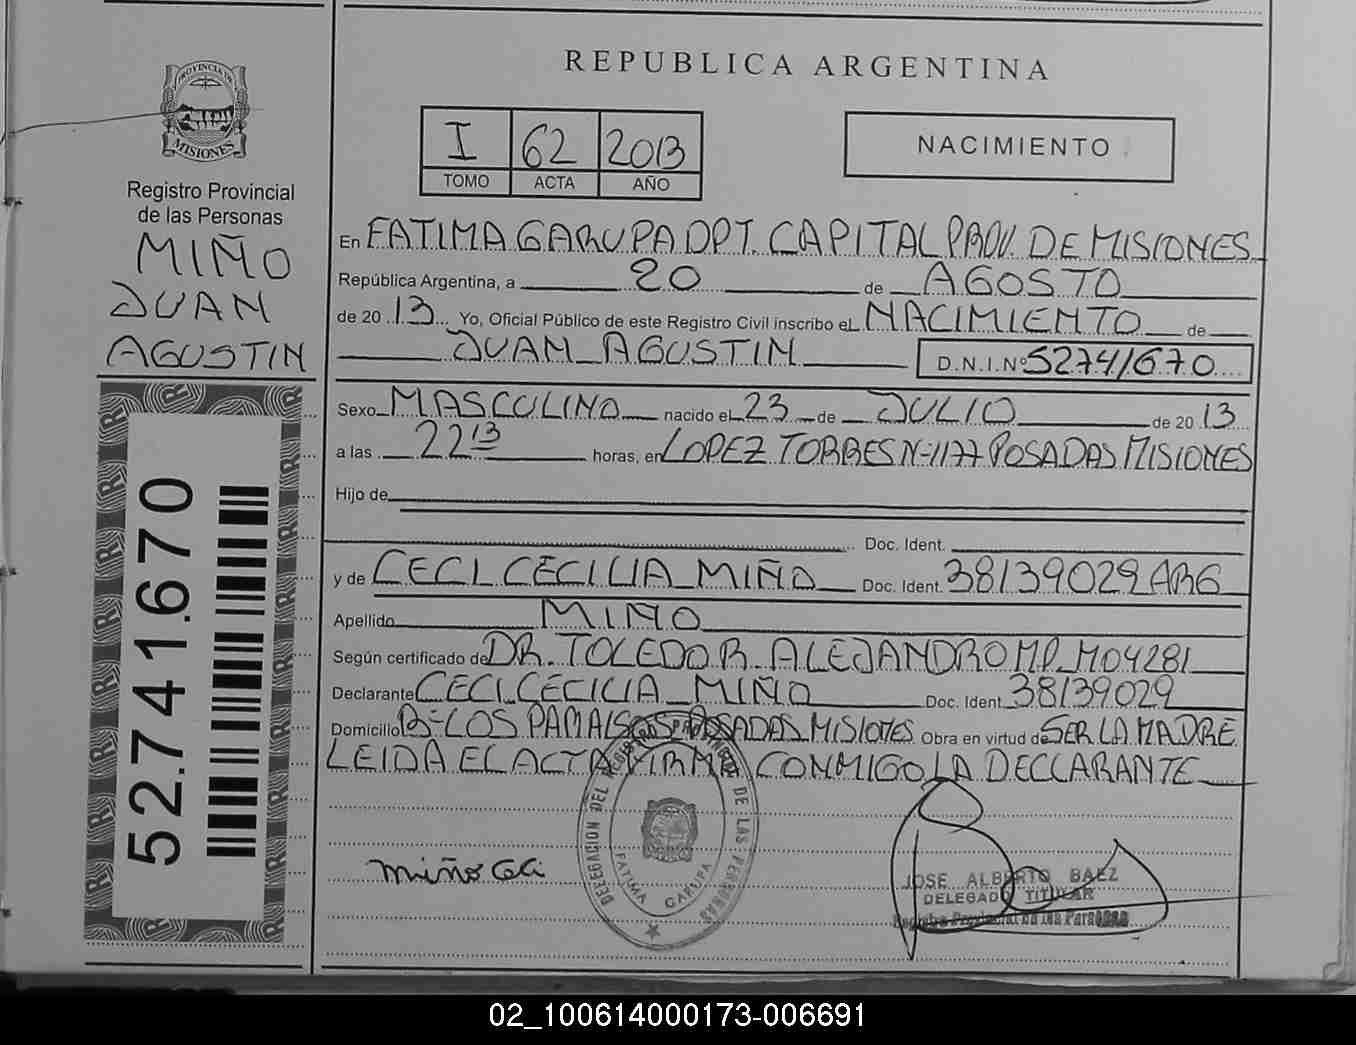 REPUBLICA ARGENTINA
PROVINCIA DE
MISIONES
Registro Provincial
de las Personas
MIÑO
JUAN
AGUSTIN
52.741.670
I 62 2013
TOMO ACTA AÑO
NACIMIENTO
En FATIMA GARUPA DPT. CAPITAL PROV. DE MISIONES
República Argentina, a 20 de AGOSTO
de 20 13 Yo, Oficial Público de este Registro Civil inscribo el NACIMIENTO de
JUAN AGUSTIN D.N.I.Nº 52741670
Sexo MASCULINO nacido el 23 de JULIO de 20 13
a las 22 13 horas, en LOPEZ TORRES N-1177 POSADAS MISIONES
Hijo de
Doc. Ident.
y de CECI CECILIA MIÑO Doc. Ident. 38139029 ARG
Apellido MIÑO
Según certificado de DR. TOLEDO R. ALEJANDRO MP. M04281
Declarante CECI CECILIA MIÑO Doc. Ident. 38139029
Domicilio B= LOS PARAISOS POSADAS MISIONES Obra en virtud de SER LA MADRE
LEIDA EL ACTA FIRMA CONMIGO LA DECLARANTE
DELEGACION DEL REGISTRO PROVINCIAL DE LAS PERSONAS
FATIMA GARUPA
miño Ceci
JOSE ALBERTO BAEZ
DELEGADO TITULAR
Registro Provincial de las Personas
02_100614000173-006691